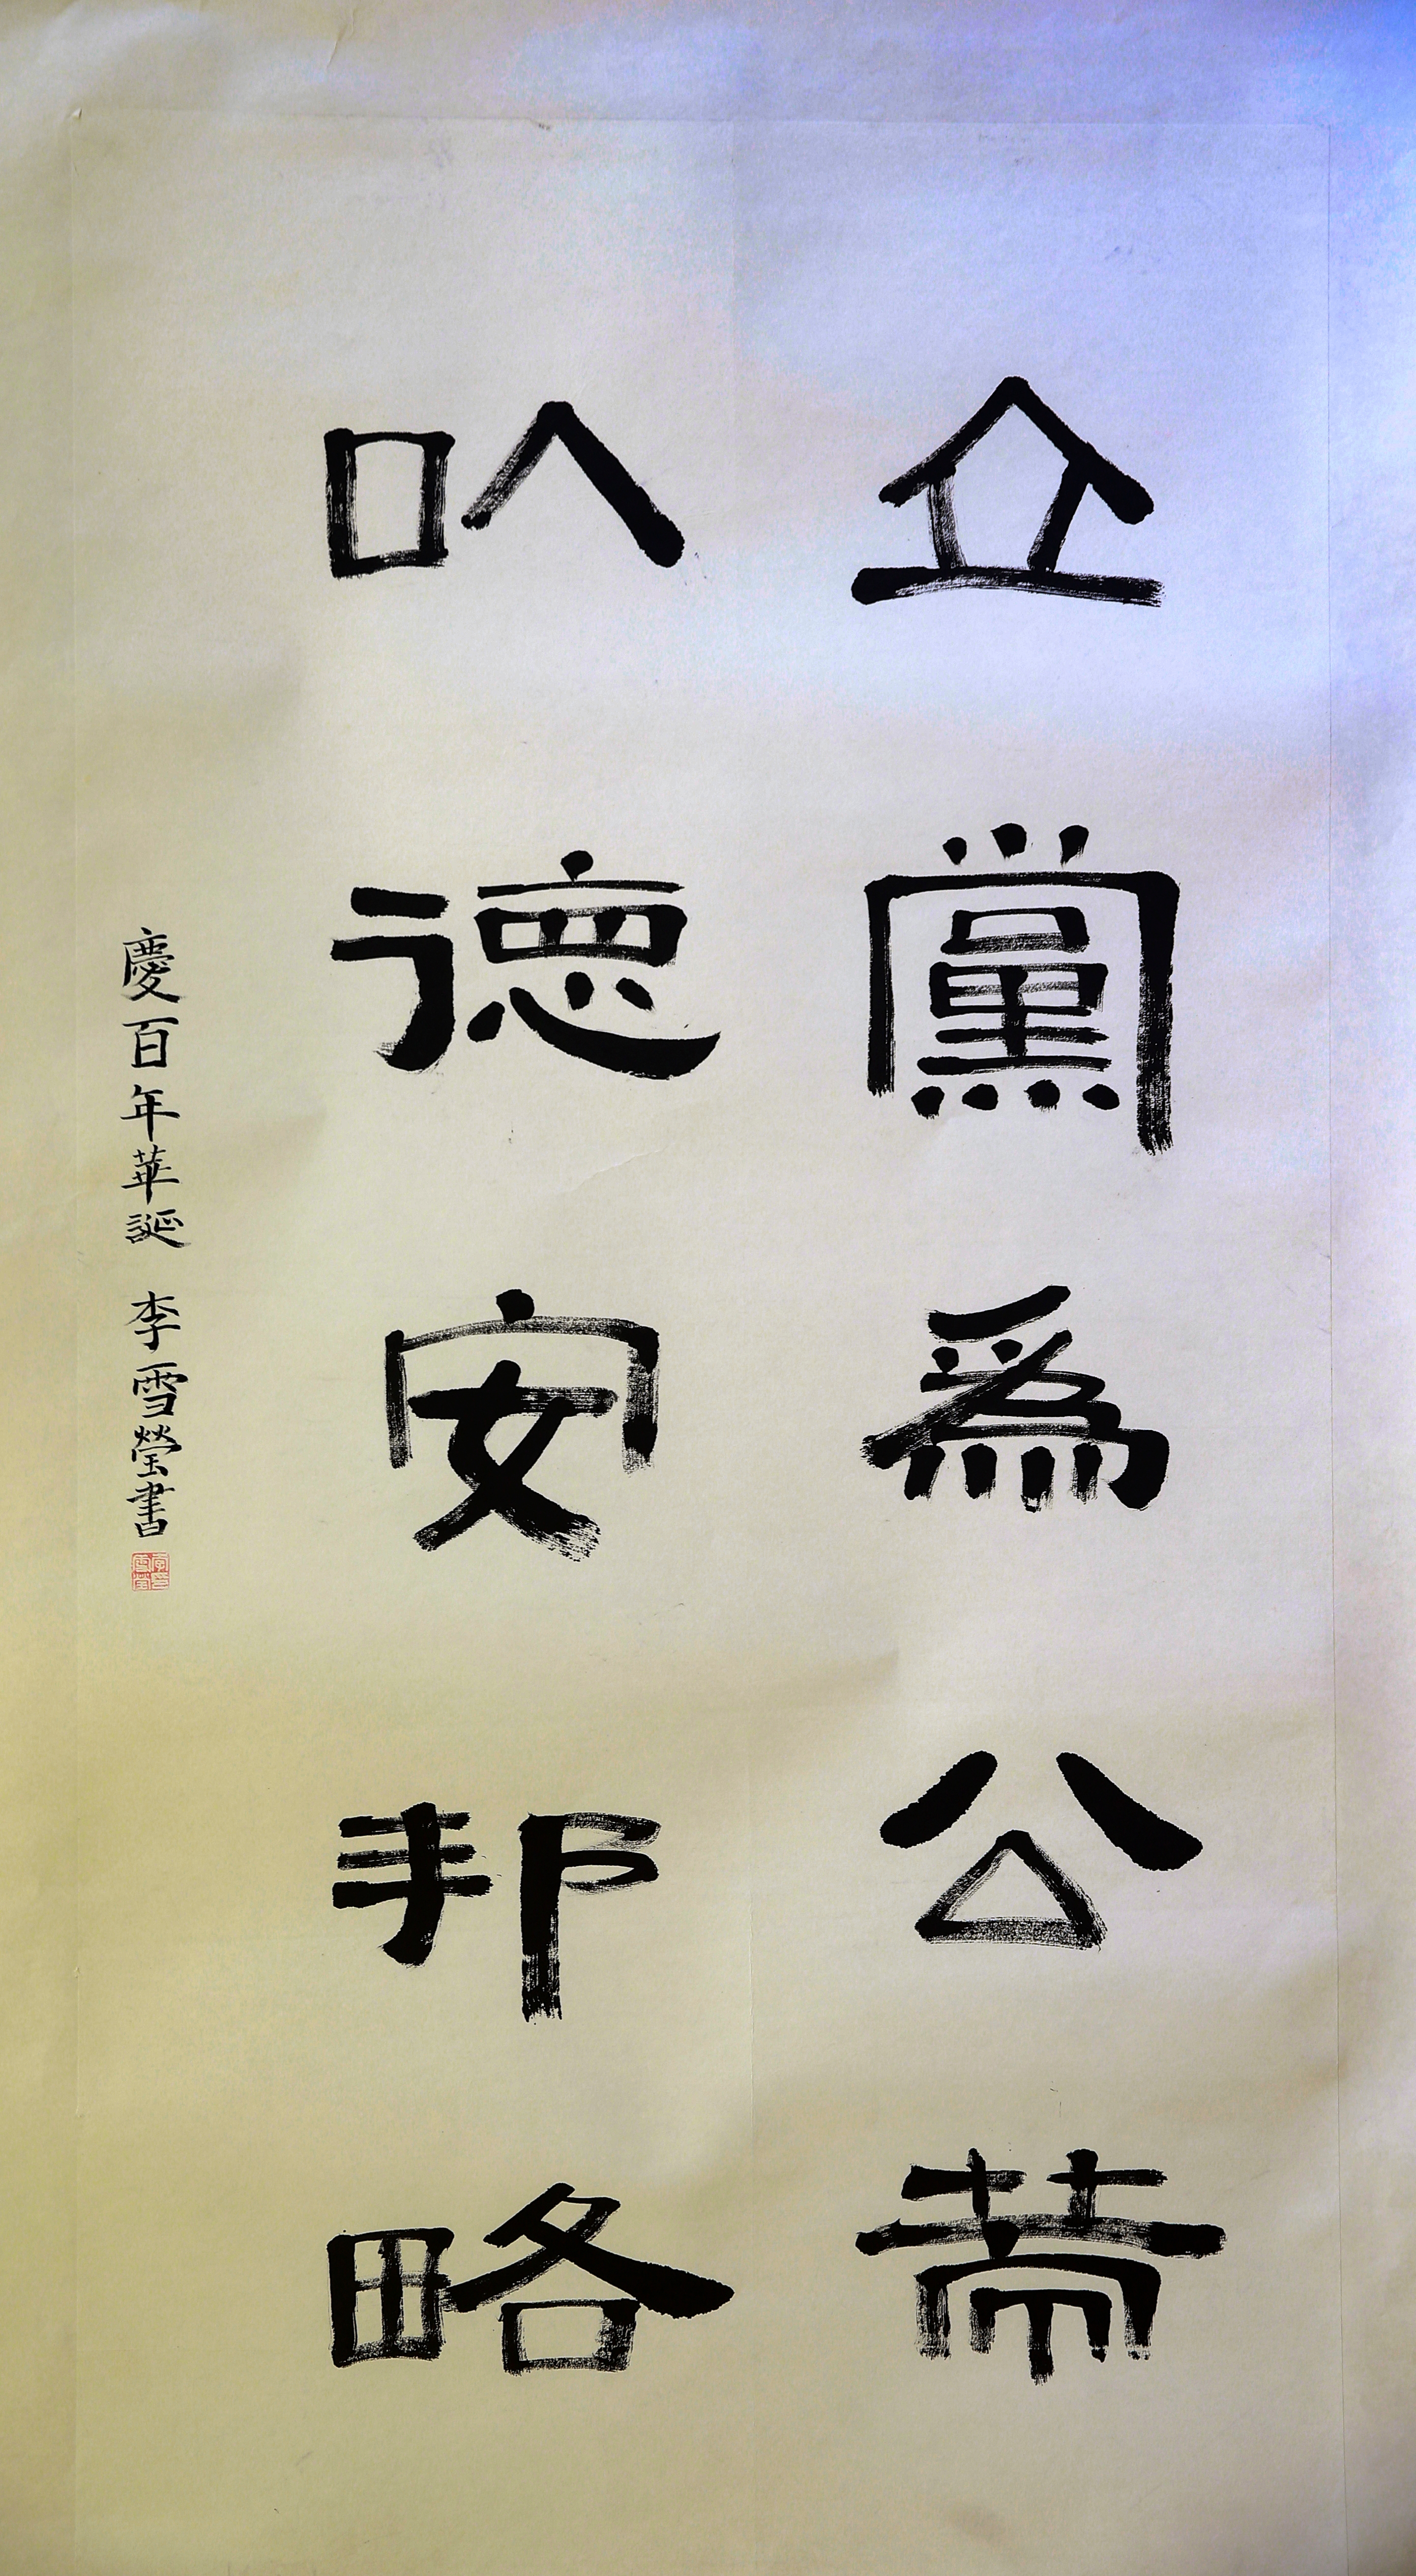 立黨爲公
以德安邦略
慶百年華誕 李雪瑩書